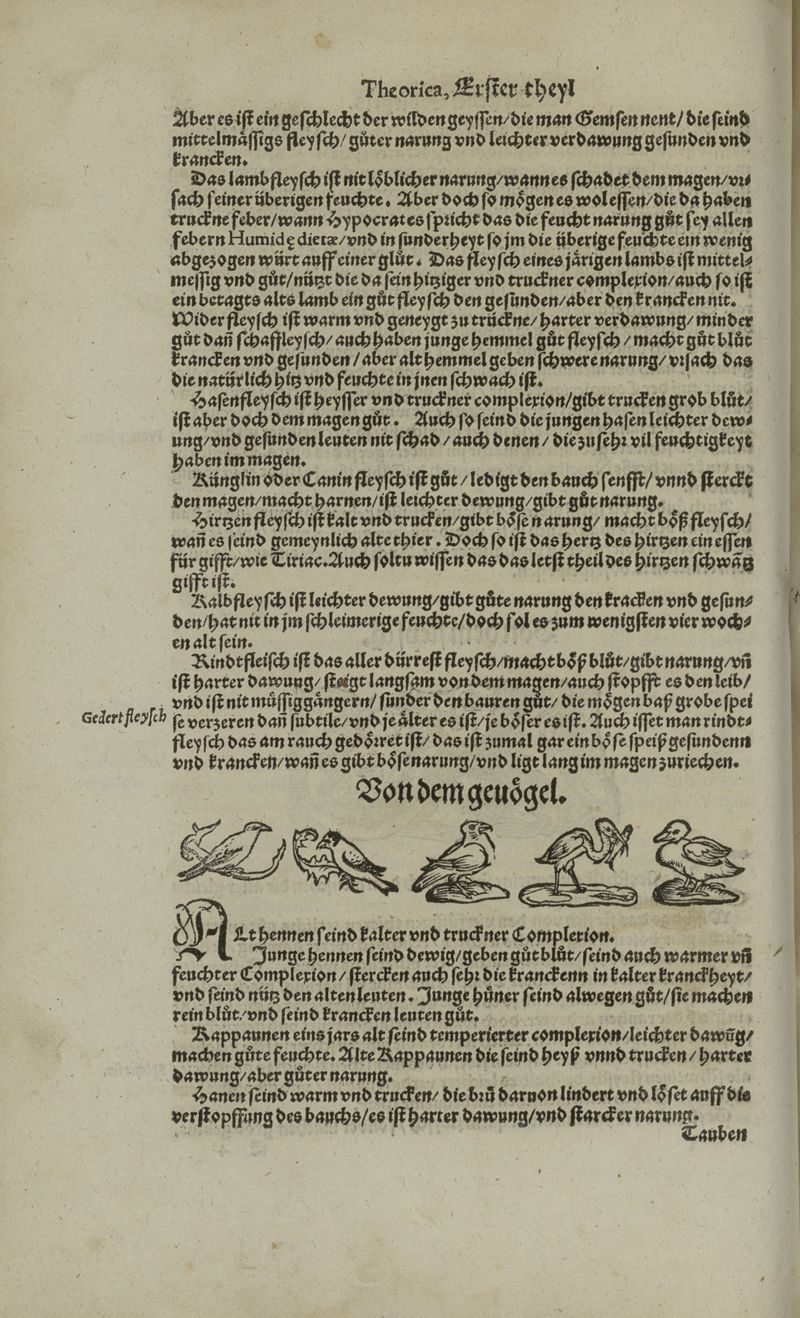 Theorica, Erster theyl
Aber es ist ein geschlecht der wilden geyssen/die man Gemsen nent/die seind
mittelmåssigs fleysch/gůter narung vnd leichter verdawung gesunden vnd
krancken.
Das lambfleysch ist nit löblicher narung/wann es schadet dem magen/vr⸗
sach seiner überigen feuchte. Aber doch so mögen es wol essen/die da haben
truckne feber/wann Hypocrates spricht das die feucht narung gůt sey allen
febern Humidę dietæ/vnd in sunderheyt so jm die überige feuchte ein wenig
abgezogen würt auff einer glůt. Das fleysch eines järigen lambs ist mittel⸗
messig vnd gůt/nützt die da sein hitziger vnd truckner complexion/auch so ist
ein betagts alts lamb ein gůt fleysch den gesunden/aber den krancken nit.
Wider fleysch ist warm vnd geneygt zu trückne/harter verdawung/minder
gůt dañ schaffleysch/auch haben junge hemmel gůt fleysch/macht gůt blůt
krancken vnd gesunden/aber alt hemmel geben schwere narung/vrsach das
die natürlich hitz vnd feuchte in jnen schwach ist.
Hasenfleysch ist heysser vnd truckner complexion/gibt trucken grob blůt/
ist aber doch dem magen gůt. Auch so seind die jungen hasen leichter dew⸗
ung/vnd gesunden leuten nit schad/auch denen/die zu sehr vil feuchtigkeyt
haben im magen.
Künglin oder Canin fleysch ist gůt/ledigt den bauch senfft/vnnd sterckt
den magen/macht harnen/ist leichter dewung/gibt gůt narung.
Hirtzen fleysch ist kalt vnd trucken/gibt böse narung/macht böß fleysch/
wañ es seind gemeynlich alte thier. Doch so ist das hertz des hirtzen ein essen
für gifft/wie Tiriac. Auch soltu wissen das das letst theil des hirtzen schwãtz
gifft ist.
Kalbfleysch ist leichter dewung/gibt gůte narung den kracken vnd gesun⸗
den/hat nit in jm schleimerige feuchte/doch sol es zum wenigsten vier woch⸗
en alt sein.
Rindtfleisch ist das aller dürrest fleysch/macht böß blůt/gibt narung/vñ
ist harter dawung/steigt langsam von dem magen/auch stopfft es den leib/
vnd ist nit müssiggängern/sunder den bauren gůt/die mögen baß grobe spei
Gedert fleysch
se verzeren dañ subtile/vnd je älter es ist/je böser es ist. Auch isset man rindt⸗
fleysch das am rauch gedörret ist/das ist zumal gar ein böse speiß gesundenn
vnd krancken/wañ es gibt böse narung/vnd ligt lang im magen zuriechen.
Von dem geuögel.
Alt hennen seind kalter vnd truckner Complexion.
Junge hennen seind dewig/geben gůt blůt/seind auch warmer vñ
feuchter Complexion/stercken auch sehr die kranckenn in kalter kranckheyt/
vnd seind nütz den alten leuten. Junge hüner seind alwegen gůt/sie machen
rein blůt/vnd seind krancken leuten gůt.
Kappaunen eins jars alt seind temperierter complexion/leichter dawũg/
machen gůte feuchte. Alte Kappaunen die seind heyß vnnd trucken/harter
dawung/aber gůter narung.
Hanen seind warm vnd trucken/die brů daruon lindert vnd löset auff die
verstopffung des bauchs/es ist harter dawung/vnd starcker narung.
Tauben